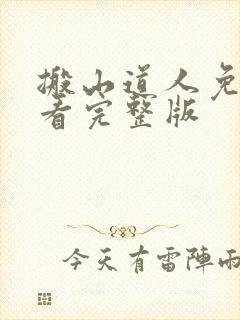 搬山道人免
看完整版
今天有雷陣雨